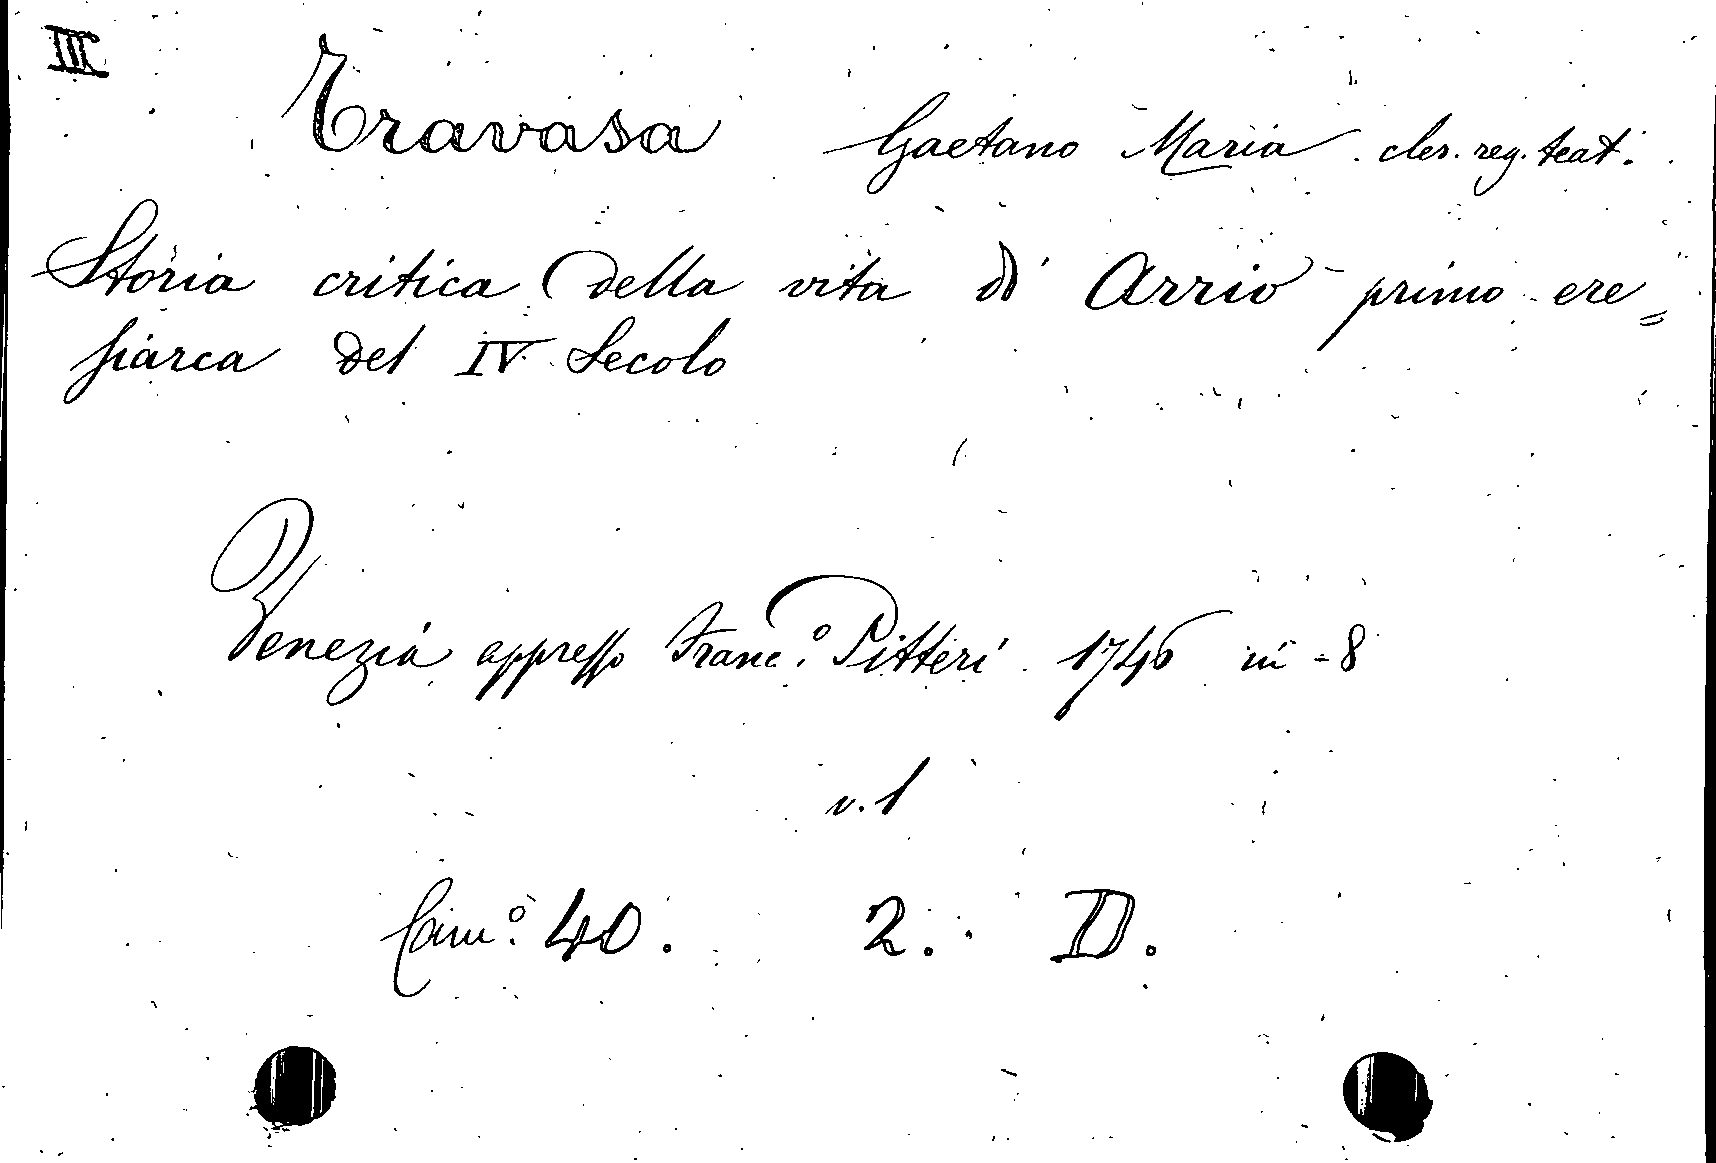 III
Travasa Gaetano Maria cler. reg. teat.
Storia critica della vita di Arrio primo ere=
siarca del IV Secolo
Venezia appresso Franc.º Pitteri 1746 in-8
v. 1
Cam.º 40. 2. D.